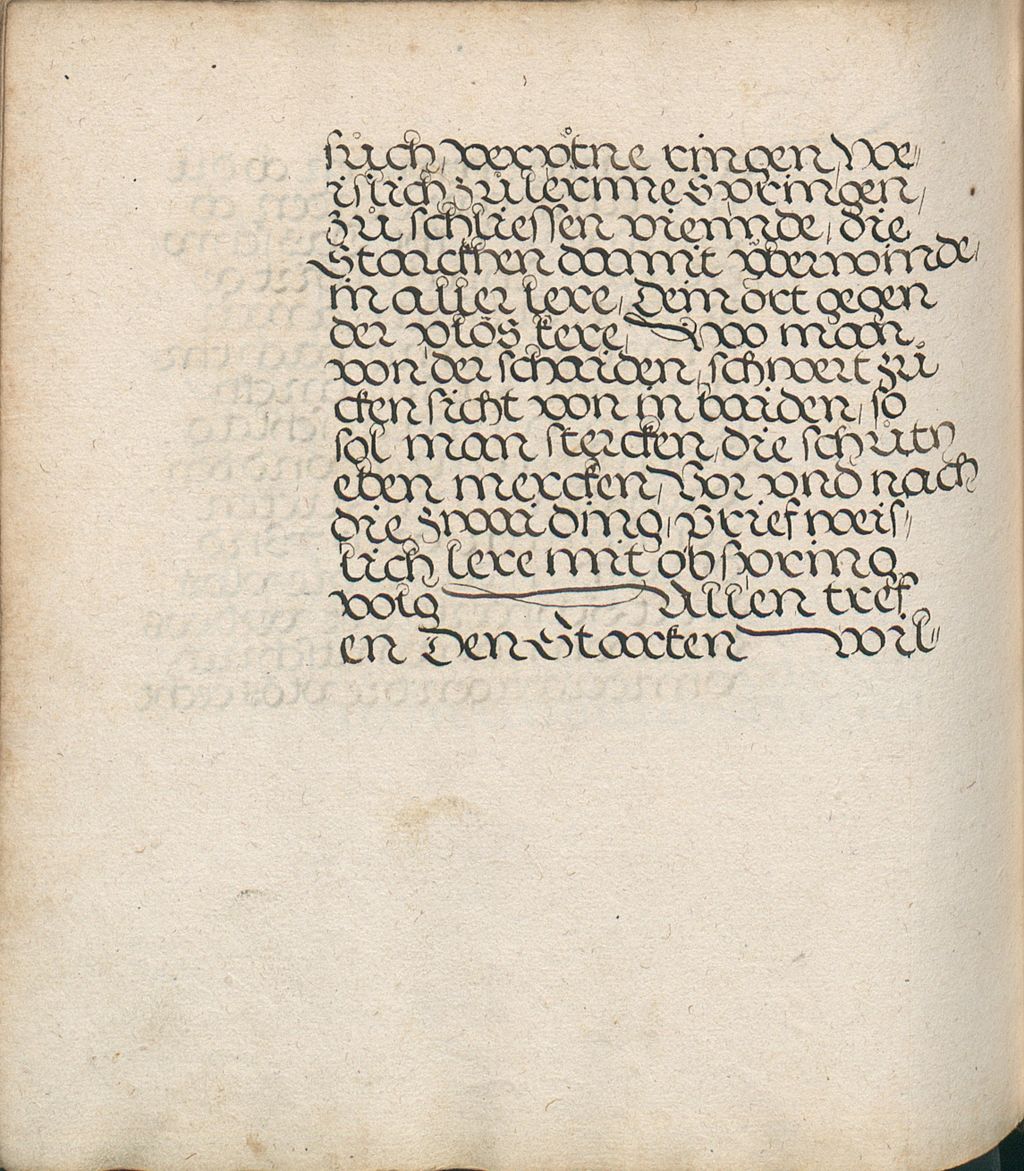 sůch, verpotne ringen, We-
islich zů lernne Springen,
zů schliessen viennde, die
Starckhen damit yberwinde,
in aller lere, Dein ort gegen
der plös kere, Wo man
von der schaiden, schwert zů
cken sicht von in baiden, so
sol man stercken, die schrittn
eben mercken, Vor vnd nach
die zwai ding, Brief weis-
lich lere mit obspring
volg Allen tref
en Den Starken wil-